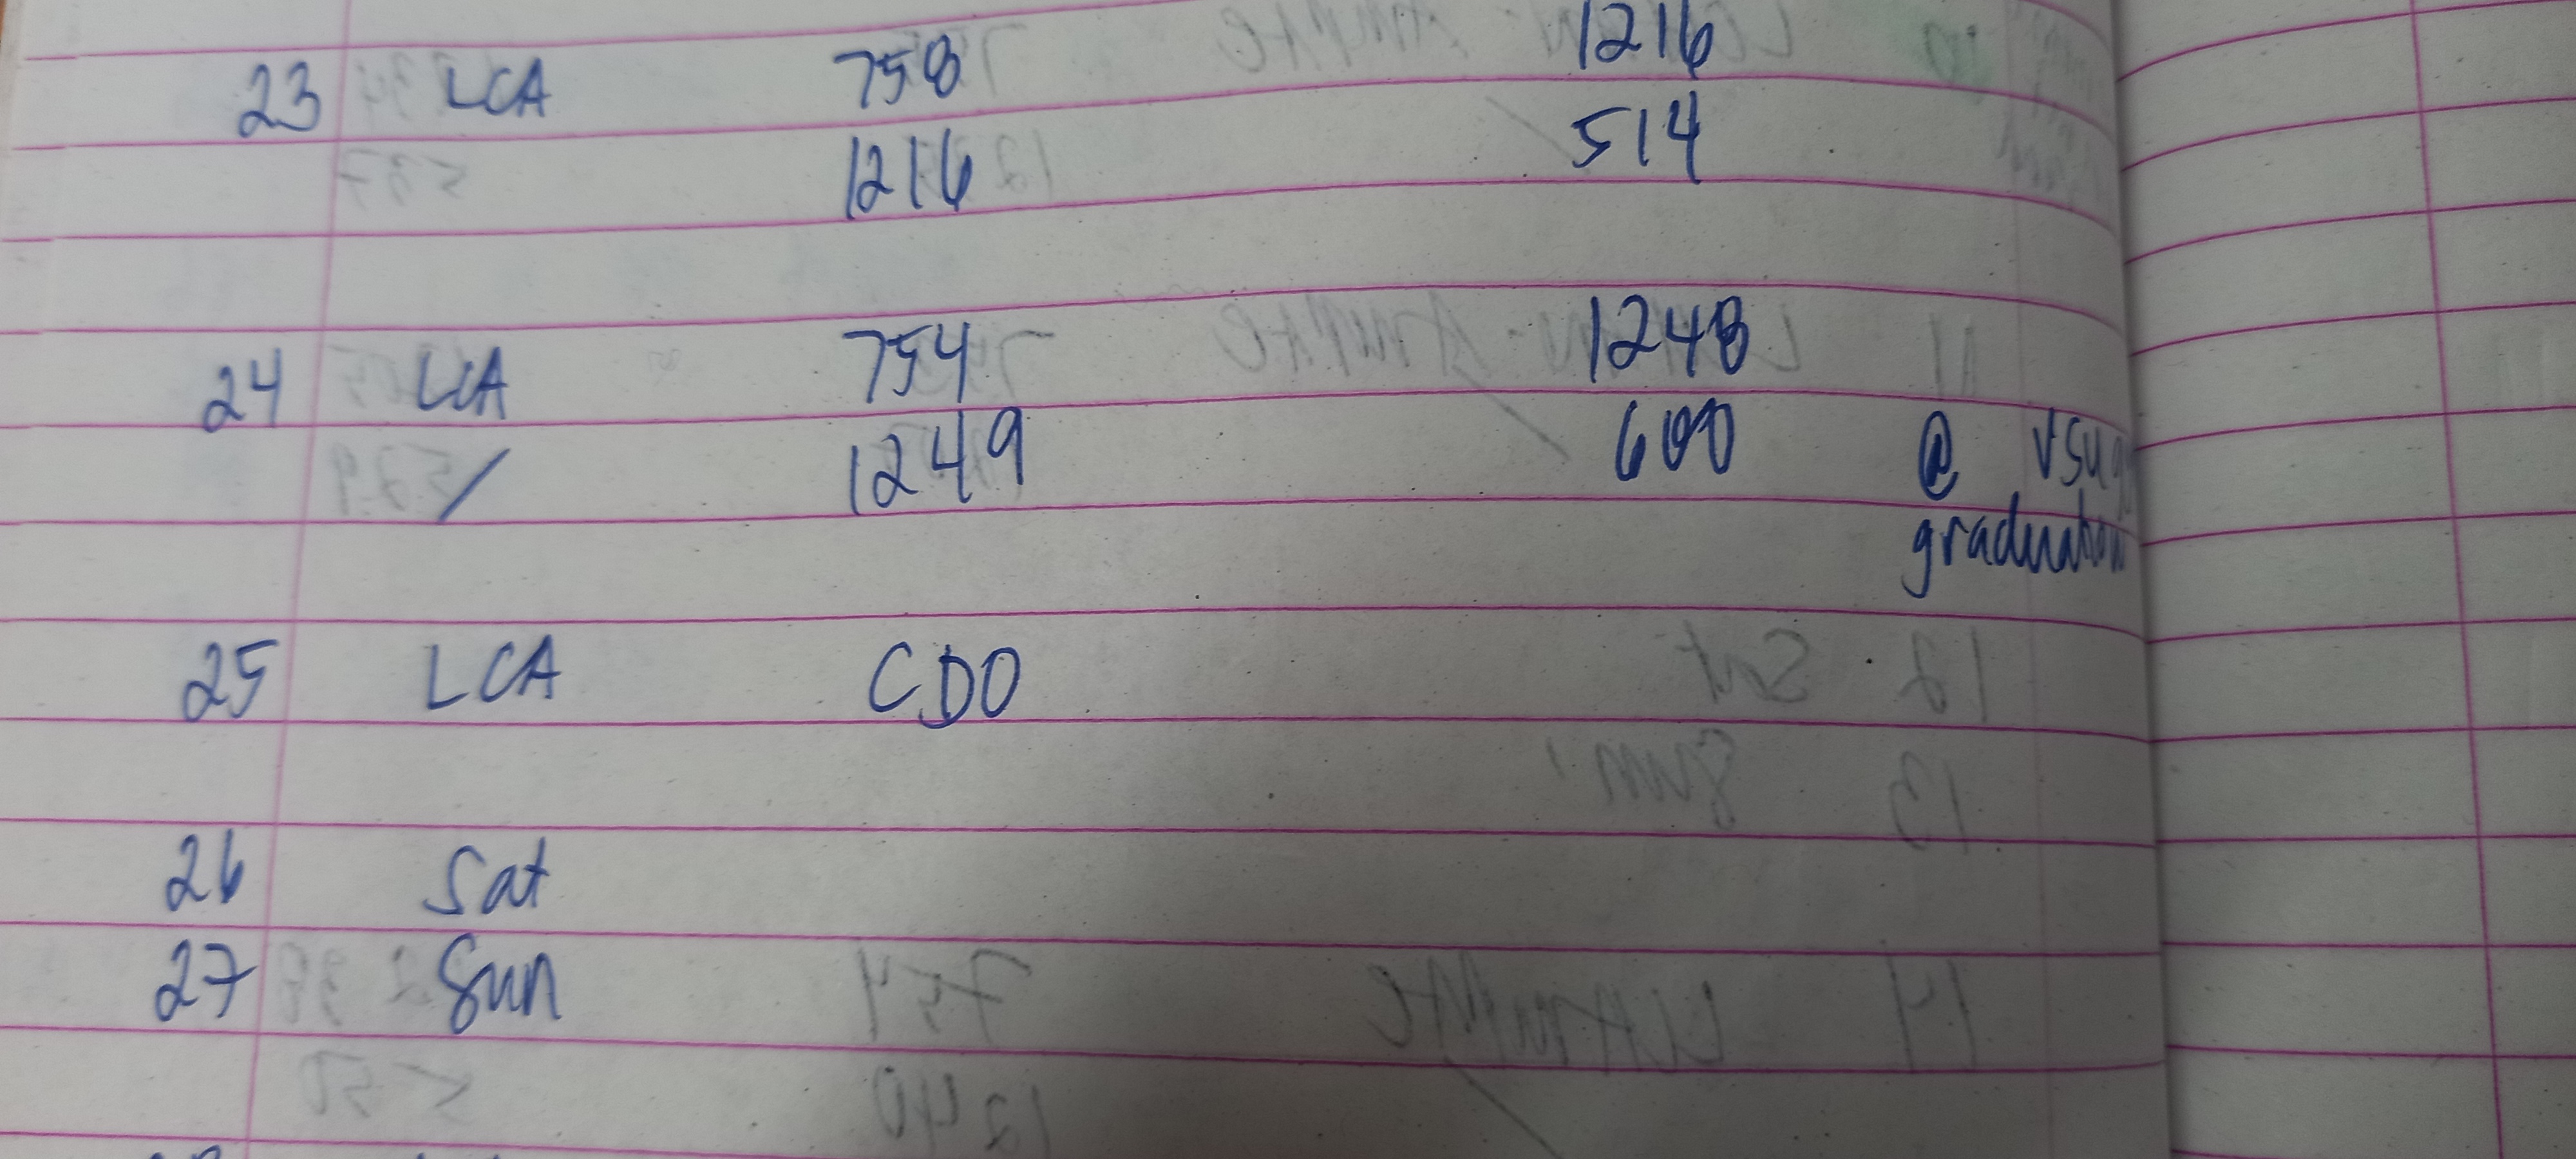 23 LCA 758 1216
1216 514
24 LCA 754 1248
/ 1249 600 @
graduation
25 LCA CDO
26 Sat
27 Sun